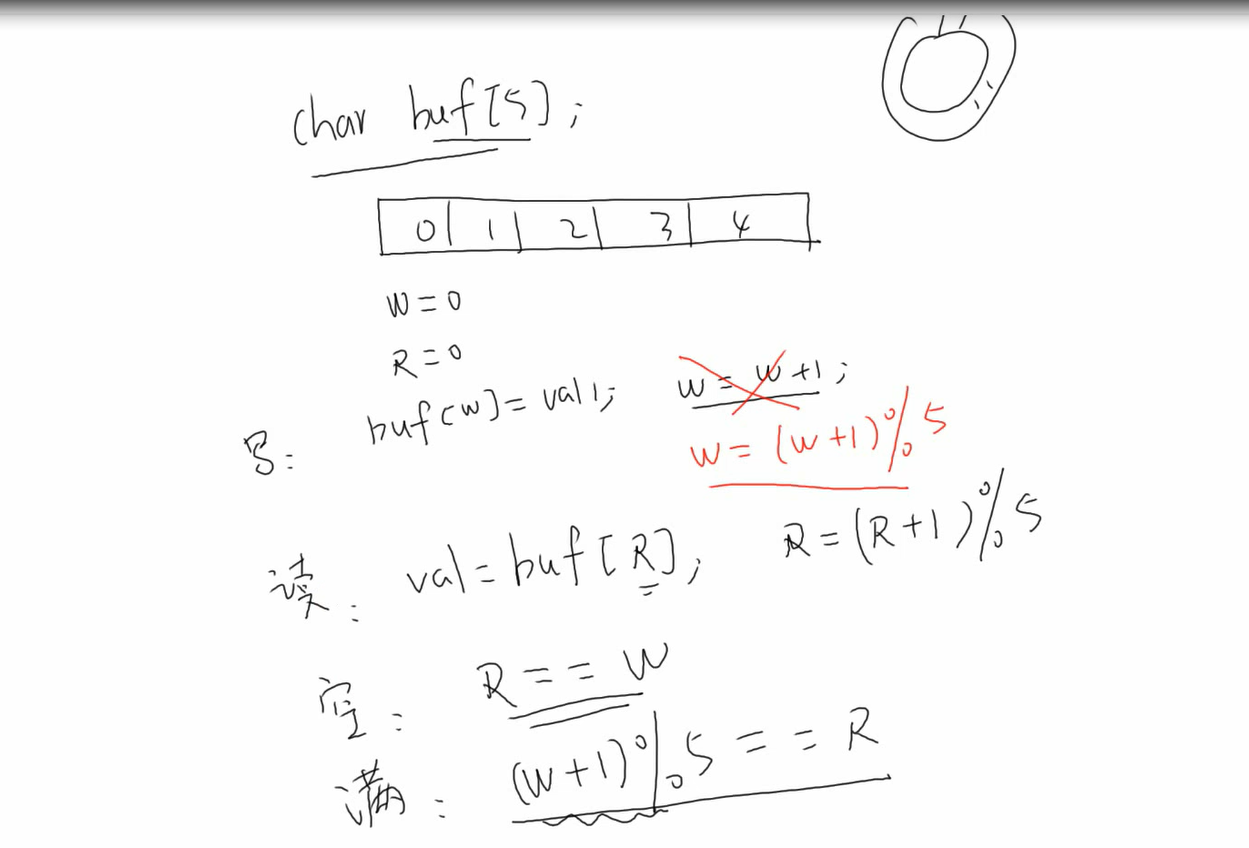 char buf[5];
0 1 2 3 4
W=0
R=0
写: buf[w]=val1; w=w+1;
w=(w+1)%5
读: val=buf[R]; R=(R+1)%5
空: R==W
满: (w+1)%5==R